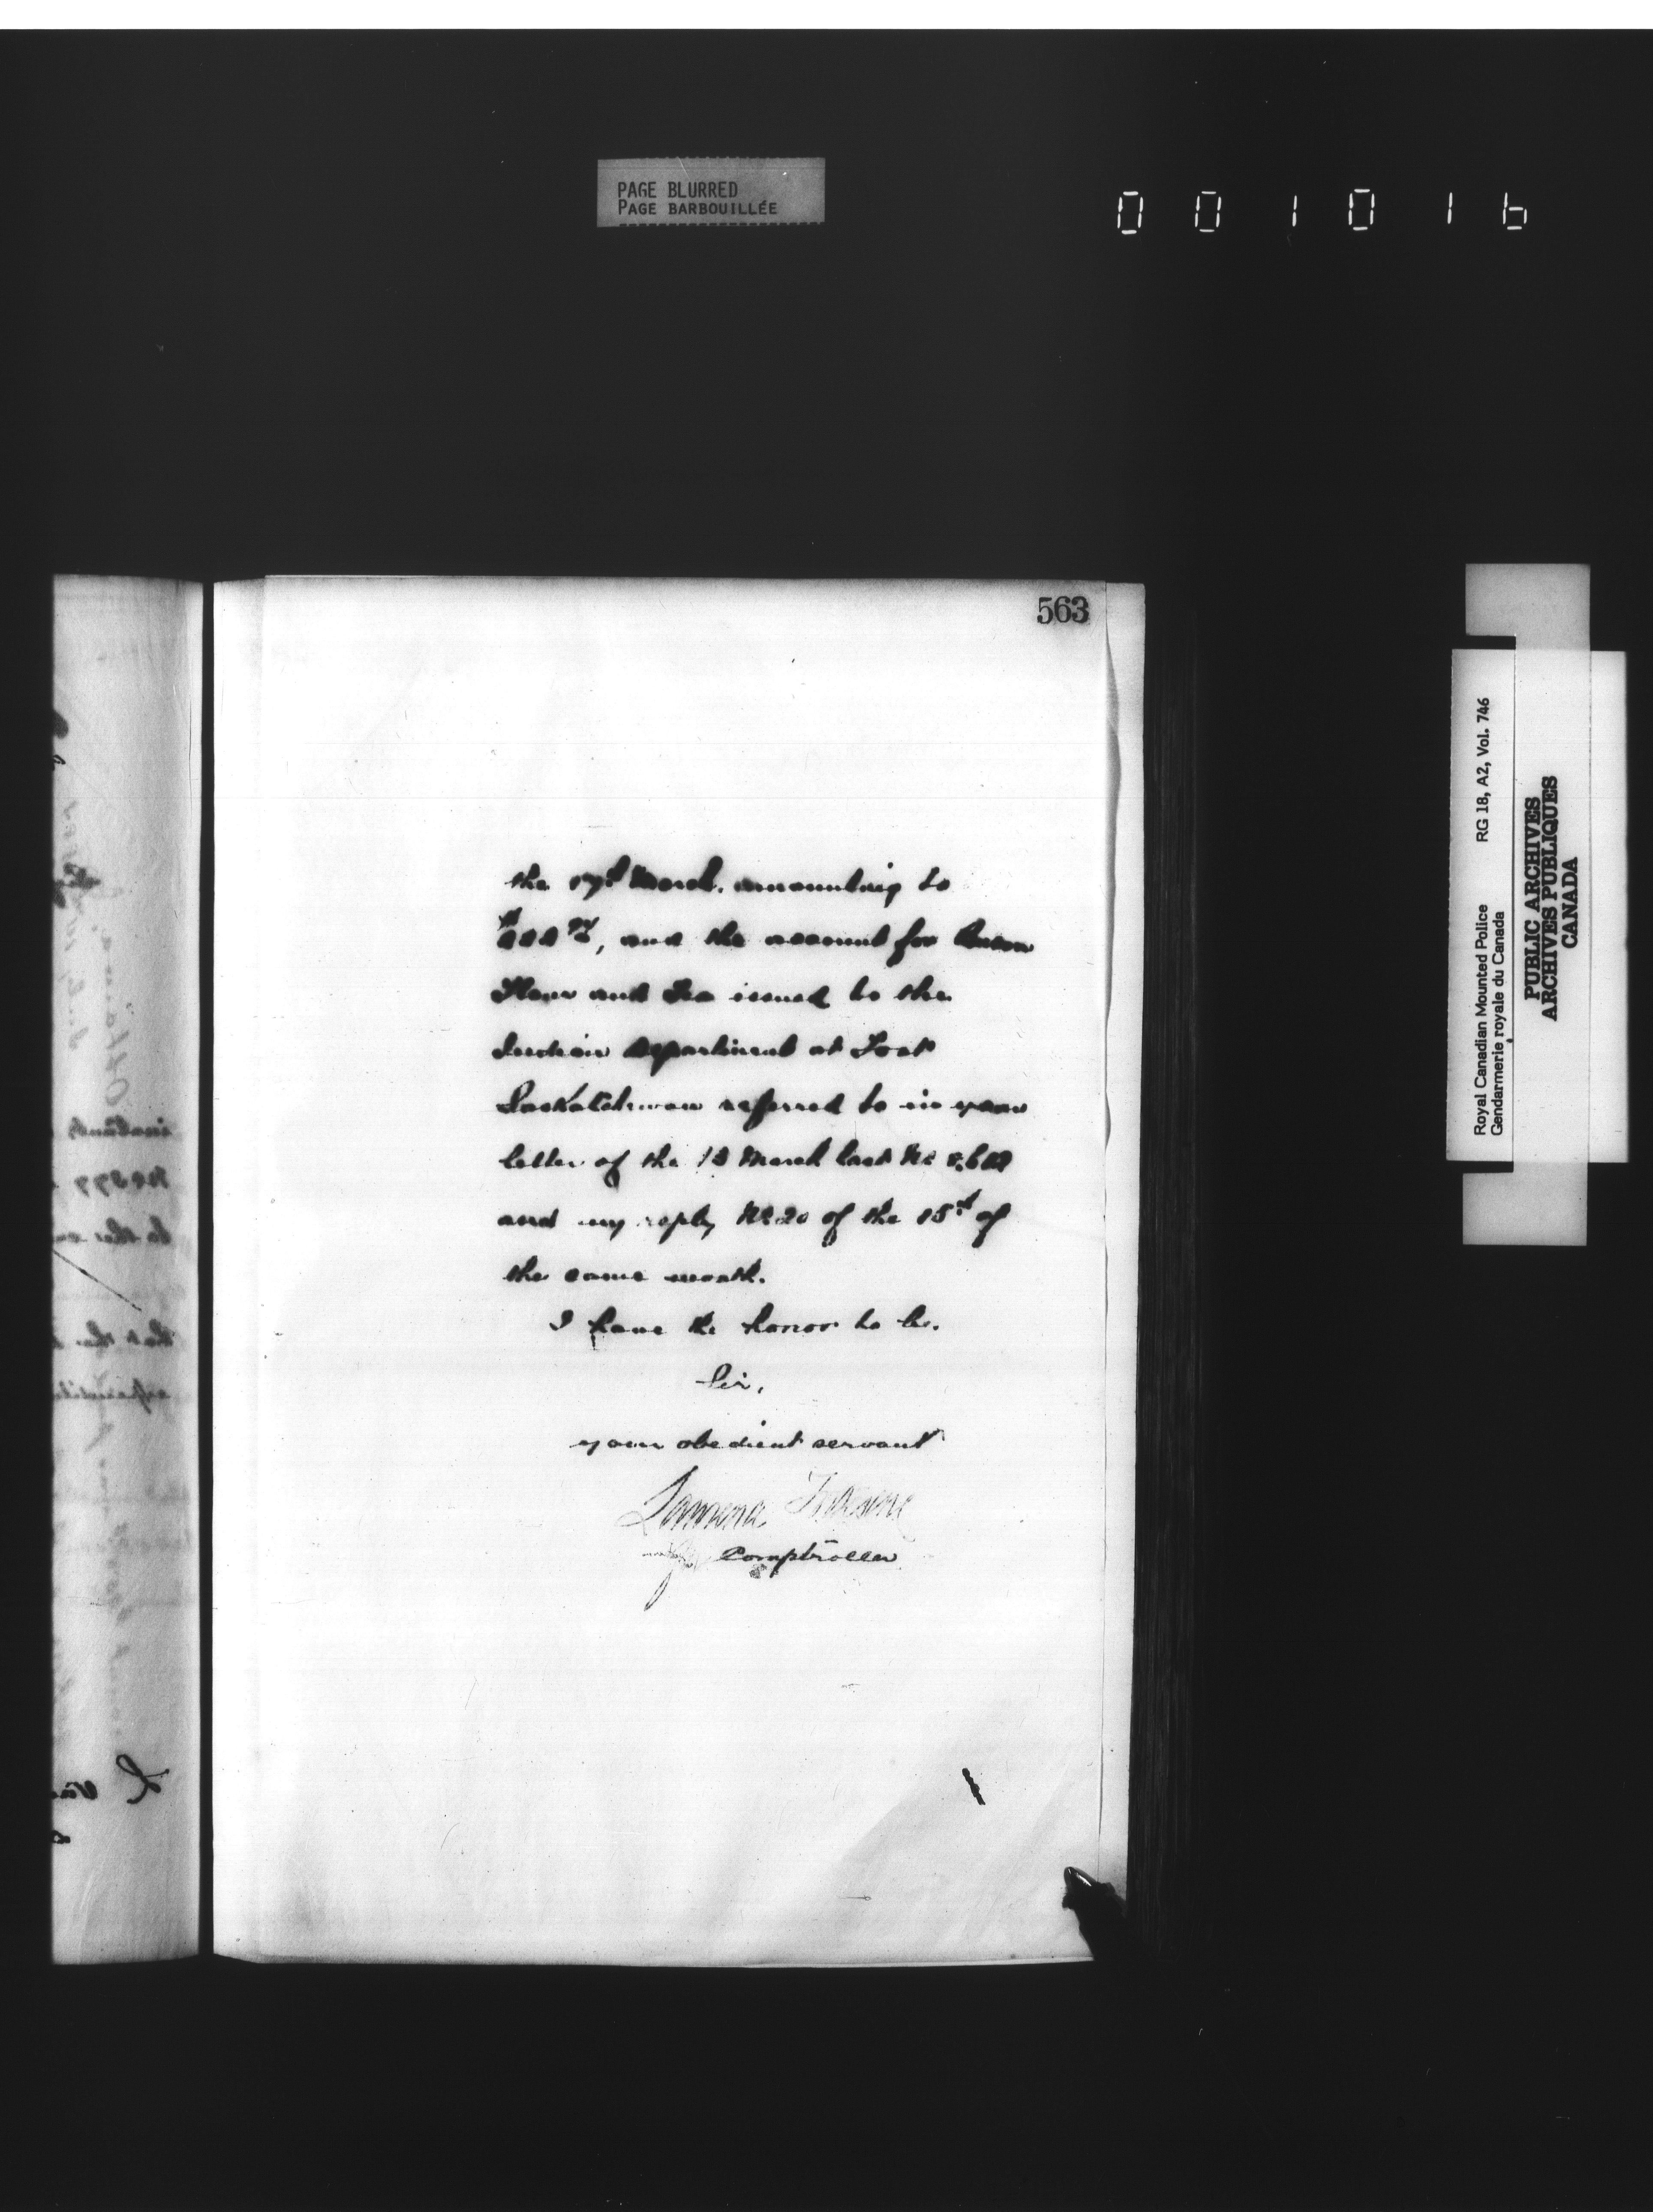 PAGE BLURRED
PAGE BARBOUILLÉE
001016
563
the 17th March. amounting to
and the account for Bacon
Flour and Tea issued to the
Indian Department at Fort
Saskatchewan referred to in your
letter of the 13 March last No
and my reply No 20 of the 15th of
the same month.
I have the honor to be.
Sir,
your obedient servant
Comptroller
Royal Canadian Mounted Police RG 18, A2, Vol. 746
Gendarmerie royale du Canada
PUBLIC ARCHIVES
ARCHIVES PUBLIQUES
CANADA